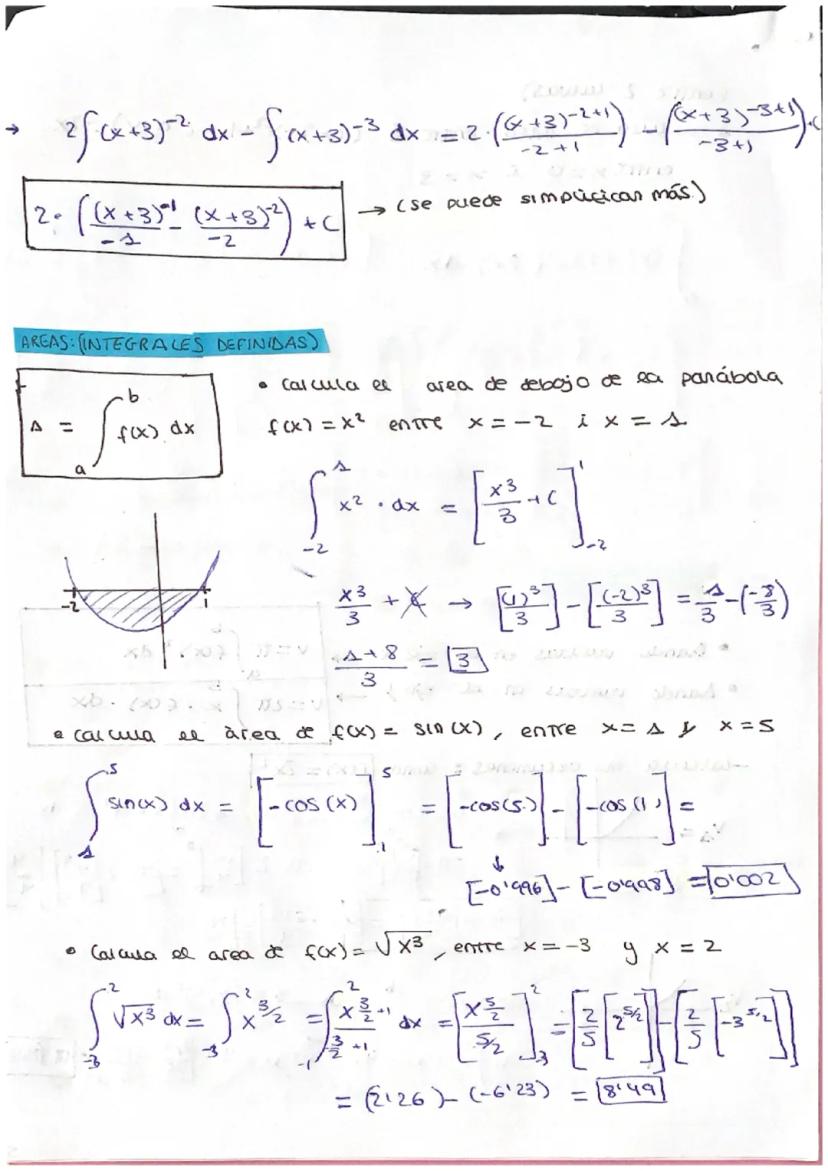 → 2∫(x+3)⁻² dx - ∫(x+3)⁻³ dx = 2·((x+3)⁻²⁺¹/-2+1) - ((x+3)⁻³⁺¹/-3+1)+C
2·((x+3)⁻¹/-1 - (x+3)⁻²/-2) + C → (se puede simplificar más)
AREAS: (INTEGRALES DEFINIDAS)
A = ∫ₐᵇ f(x) dx
• calcula el area de debajo de la parábola
f(x) = x² entre x = -2 i x = 1
∫₋₂¹ x² · dx = [x³/3 + C]₋₂¹
-2 1
x³/3 + C → [(1)³/3] - [(-2)³/3] = 1/3 - (-8/3)
1+8/3 = 3
• calcula el àrea de f(x) = sin(x), entre x=1 y x=5
∫₁⁵ sin(x) dx = [-cos(x)]₁⁵ = [-cos(5)] - [-cos(1)] =
↓
[-0'996] - [-0'998] = 0'002
• Calcula el area de f(x) = √x³, entre x = -3 y x = 2
∫₋₃² √x³ dx = ∫₋₃² x^3/2 = ∫₋₁² x^3/2+1/3/2+1 dx = [x^5/2/5/2]₋₃² = [2/5[2^5/2]] - [2/5[-3^5/2]]
= (2'26) - (-6'23) = 8'49